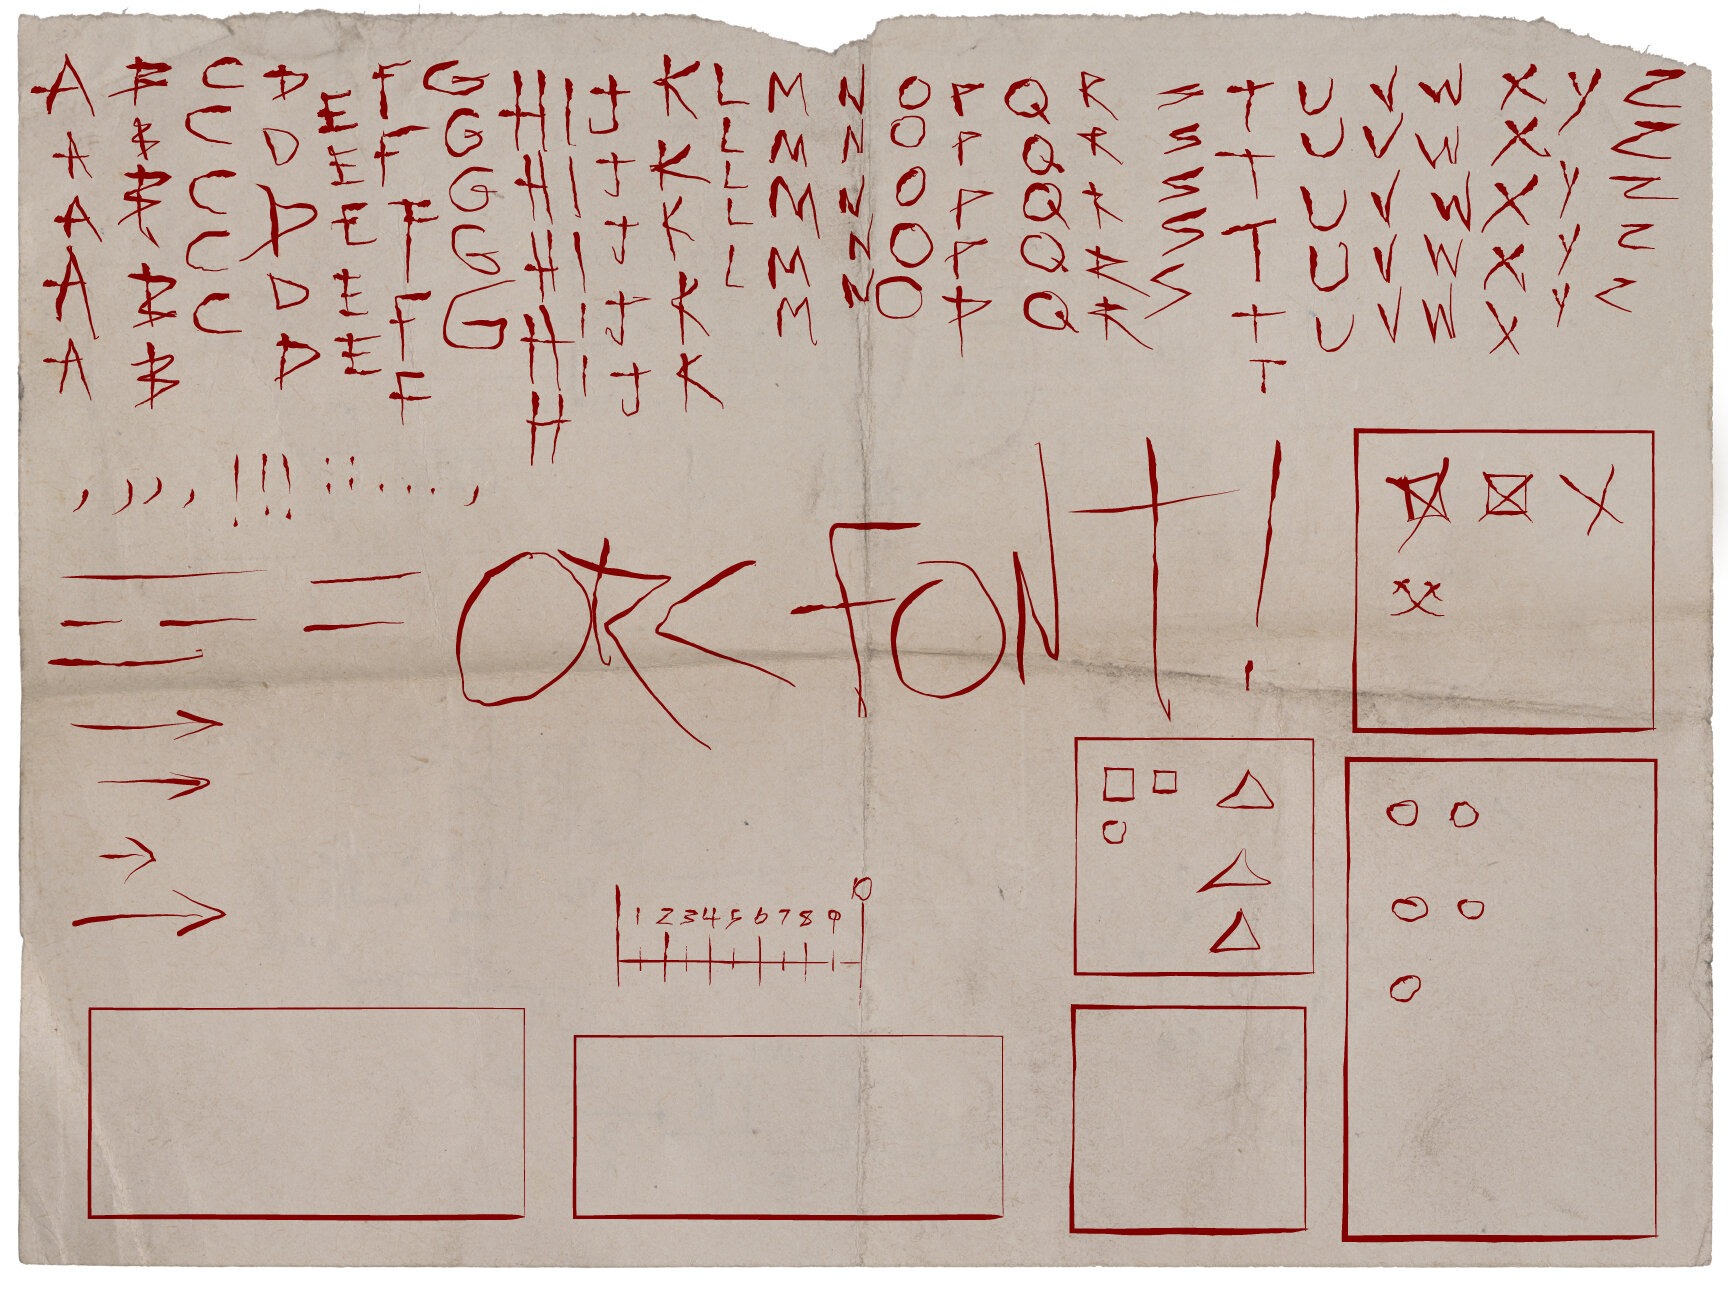 A B C D E F G H I J K L M N O P Q R S T U V W X Y Z
A B C D E F G H I J K L M N O P Q R S T U V W X Y Z
A B C D E F G H I J K L M N O P Q R S T U V W X Y Z
A B C D E F G H I J K L M N O P Q R S T U V W X Y Z
A B C D E F G H I J K M N O P Q R S T U V W X Y Z
B F H T
, ) ) , ! ! ! : : . . . ,
ORC FONT!
10
1 2 3 4 5 6 7 8 9